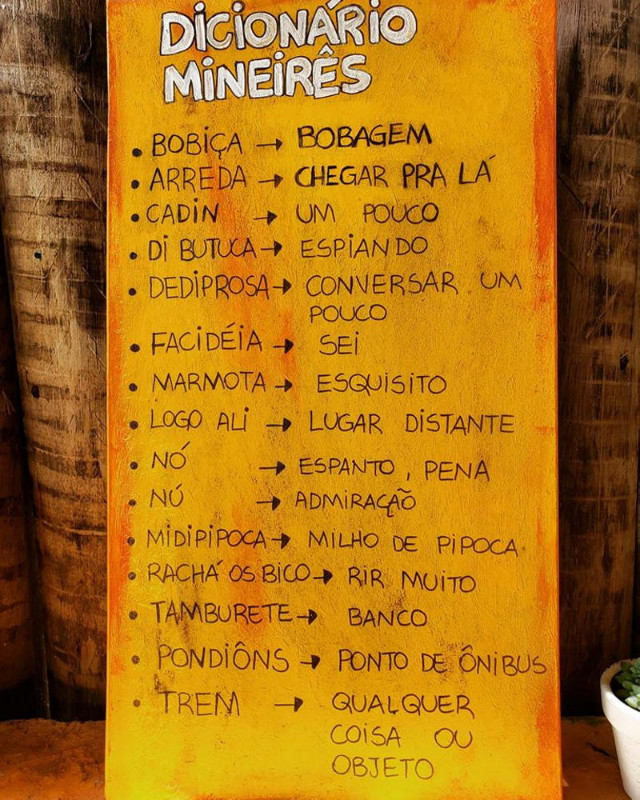 DICIONÁRIO
MINEIRÊS
• BOBIÇA → BOBAGEM
• ARREDA → CHEGAR PRA LÁ
• CADIN → UM POUCO
• DI BUTUCA → ESPIANDO
• DEDIPROSA → CONVERSAR UM
POUCO
• FACIDÉIA → SEI
• MARMOTA → ESQUISITO
• LOGO ALI → LUGAR DISTANTE
• NÓ → ESPANTO, PENA
• NÚ → ADMIRAÇÃO
• MIDIPIPOCA → MILHO DE PIPOCA
• RACHÁ OS BICO → RIR MUITO
• TAMBURETE → BANCO
• PONDIÔNS → PONTO DE ÔNIBUS
• TREM → QUALQUER
COISA OU
OBJETO